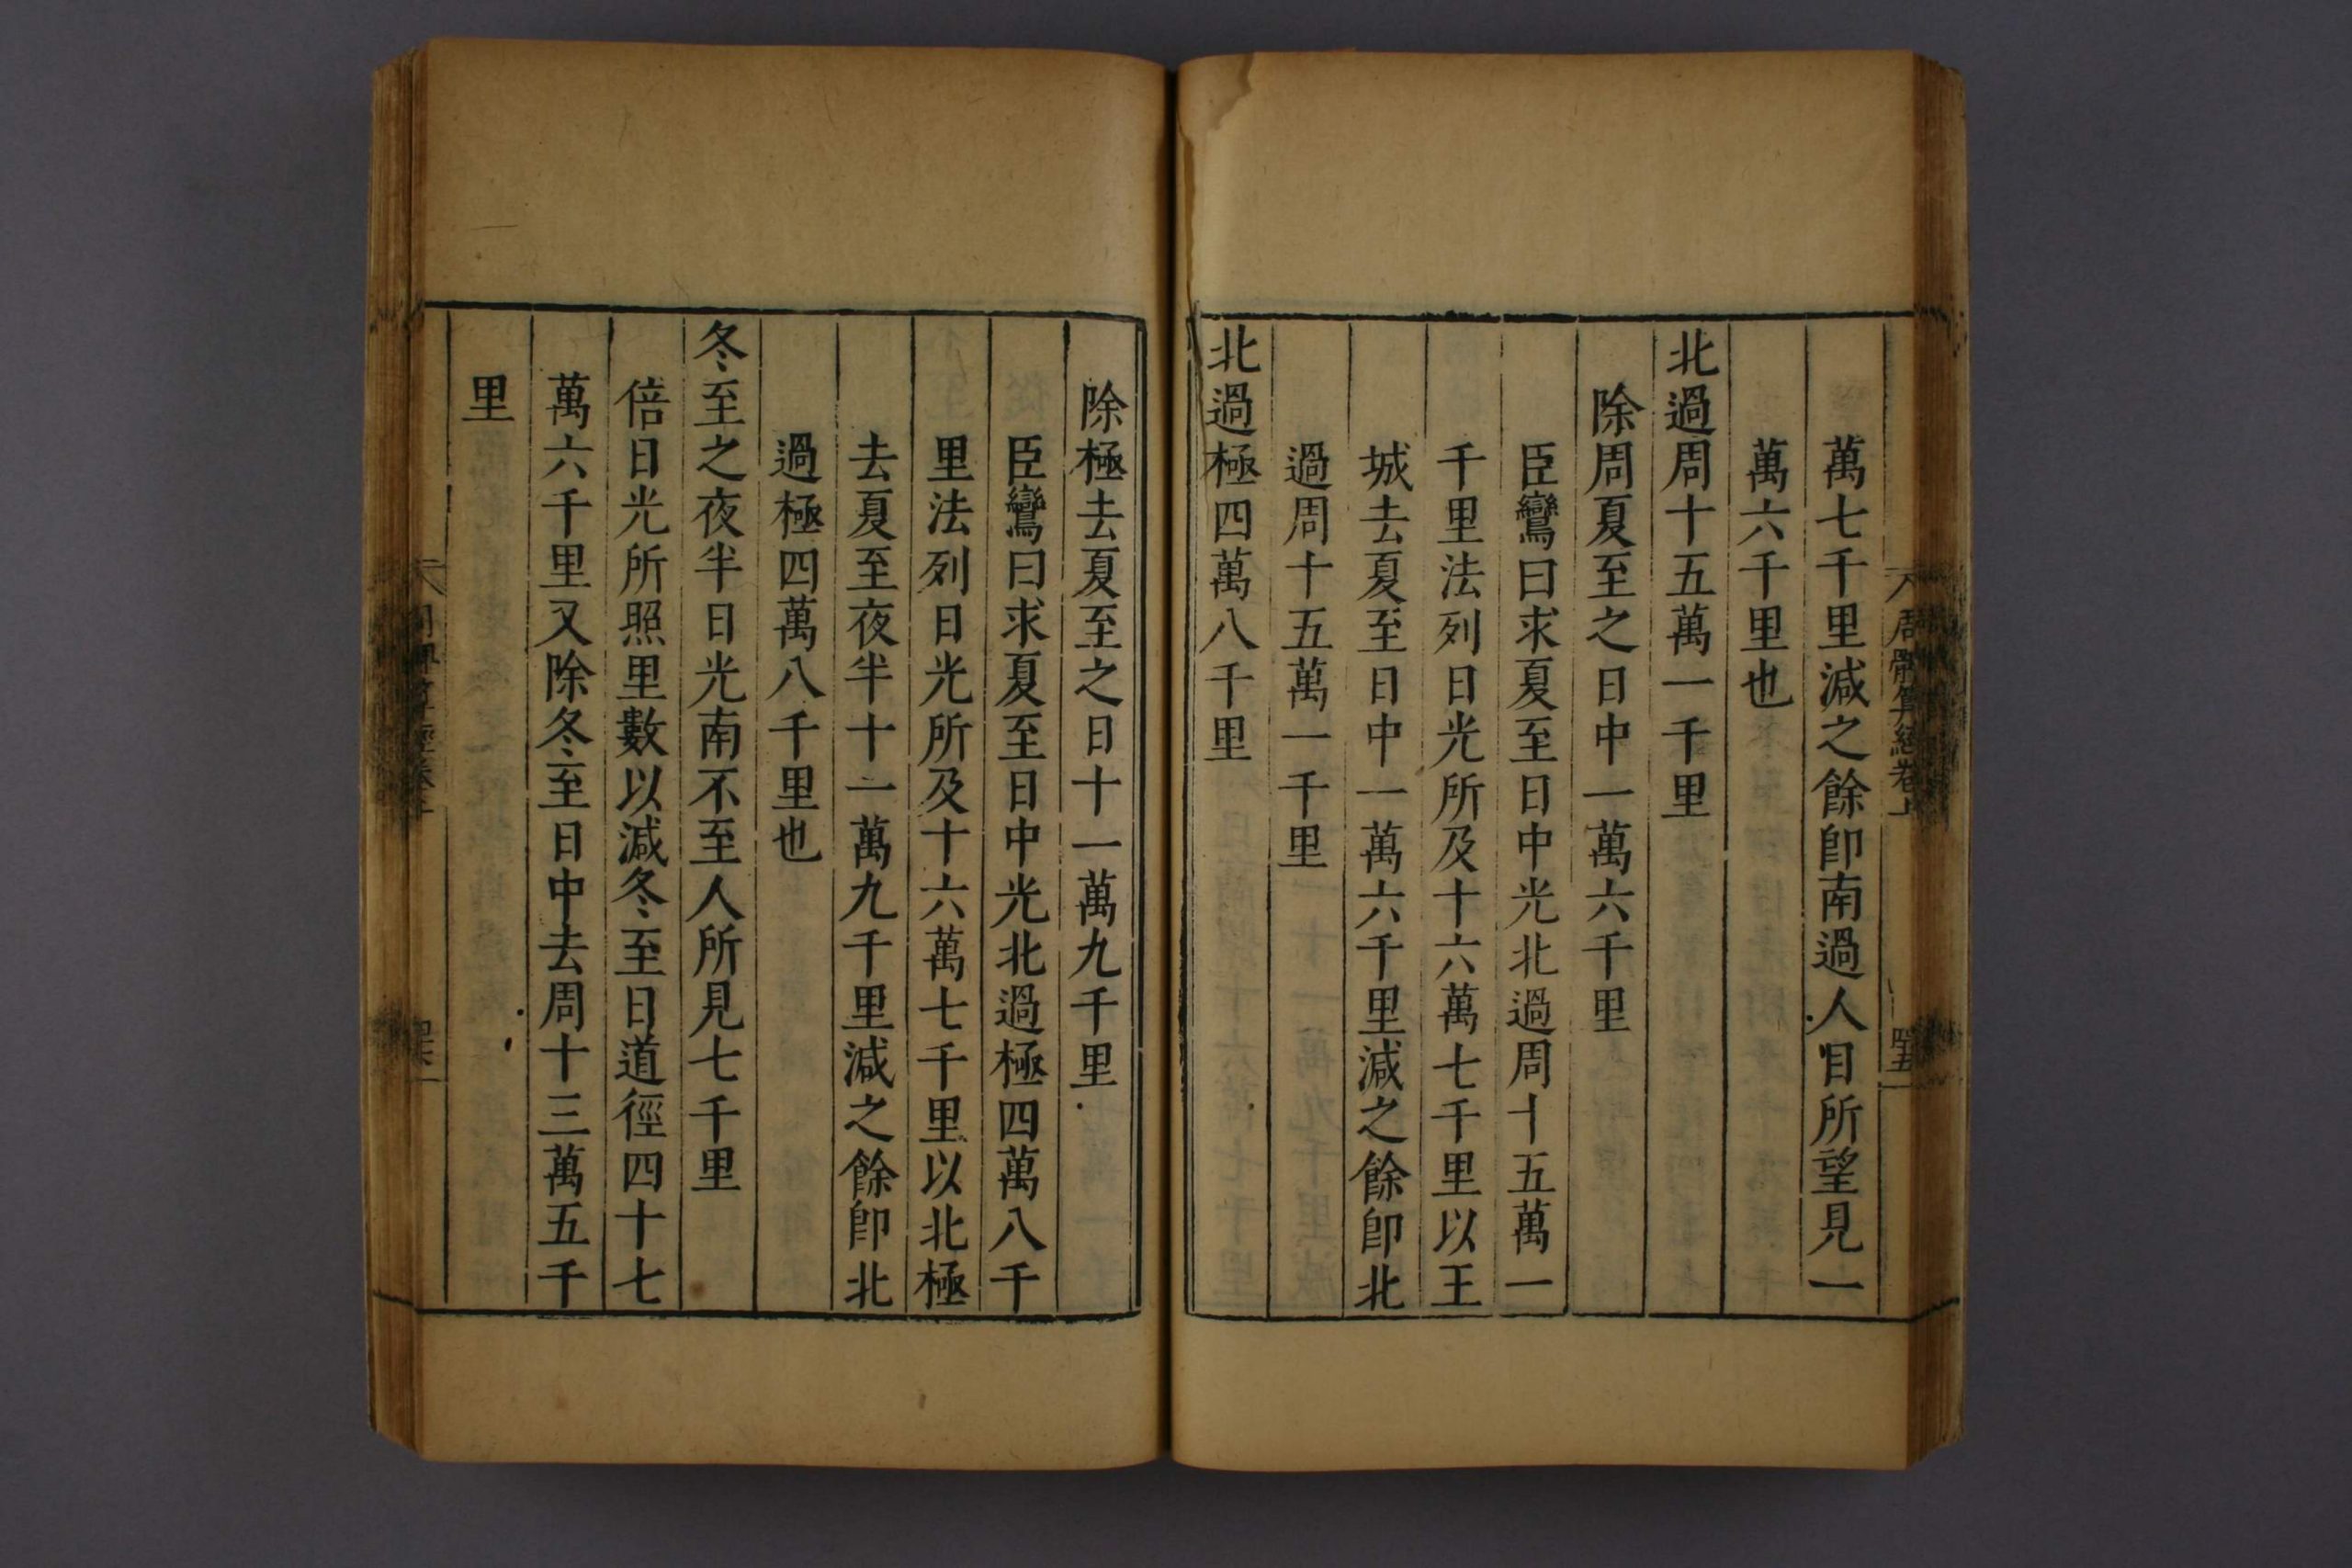 周髀算經卷上
四五
萬七千里減之餘卽南過人目所望見一
萬六千里也
北過周十五萬一千里
除周夏至之日中一萬六千里
臣鸞曰求夏至日中光北過周十五萬一
千里法列日光所及十六萬七千里以王
城去夏至日中一萬六千里減之餘卽北
過周十五萬一千里
北過極四萬八千里
除極去夏至之日十一萬九千里
臣鸞曰求夏至日中光北過極四萬八千
里法列日光所及十六萬七千里以北極
去夏至夜半十一萬九千里減之餘卽北
過極四萬八千里也
冬至之夜半日光南不至人所見七千里
倍日光所照里數以減冬至日道徑四十七
萬六千里又除冬至日中去周十三萬五千
里